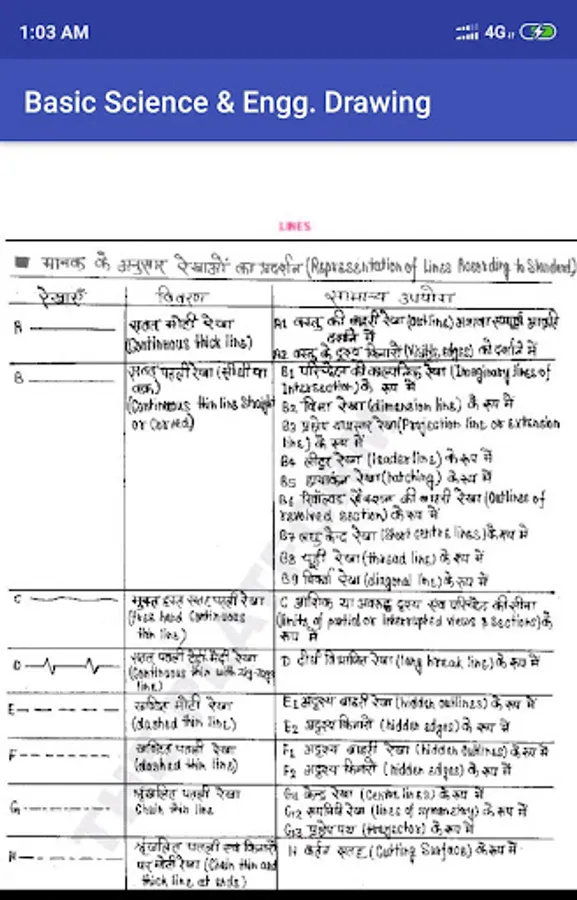 1:03 AM 4G
Basic Science & Engg. Drawing
LINES
■ मानक के अनुसार रेखाओं का प्रदर्शन (Representation of Lines According to Standard)
रेखाएँ विवरण सामान्य उपयोग
A सतत मोटी रेखा A1 वस्तु की बाहरी रेखा (outline) अथवा सम्पूर्ण आकृति
(Continuous thick line) दर्शाने में
A2 वस्तु के दृश्य किनारों (Visible edges) को दर्शाने में
B सतत पतली रेखा (सीधी या B1 परिच्छेदन की काल्पनिक रेखा (Imaginary lines of
वक्र) Intersection) के रूप में
(Continuous thin line straight B2 विमा रेखा (dimension line) के रूप में
or curved) B3 प्रक्षेप रेखा (Projection line or extension
line) के रूप में
B4 लीडर रेखा (leader line) के रूप में
B5 रेखा (hatching) के रूप में
B6 की बाहरी रेखा (Outlines of
revolved section) के रूप में
B7 लघु केन्द्र रेखा (Short centre lines) के रूप में
B8 चूड़ी रेखा (thread line) के रूप में
B9 विकर्ण रेखा (diagonal line) के रूप में
C मुक्त हस्त सतत पतली रेखा C आंशिक या अवरुद्ध दृश्य एवं परिच्छेद की सीमा
(free hand continuous (limits of partial or interrupted views & sections) के
thin line) रूप में
D सतत पतली टेढ़ी मेढ़ी रेखा D दीर्घ रेखा (long break line) के रूप में
(Continuous thin with zig-zags
line)
E खंडित मोटी रेखा E1 अदृश्य बाहरी रेखा (hidden outlines) के रूप में
(dashed thin line) E2 अदृश्य किनारों (hidden edges) के रूप में
F खंडित पतली रेखा F1 अदृश्य बाहरी रेखा (hidden outlines) के रूप में
(dashed thin line) F2 अदृश्य किनारों (hidden edges) के रूप में
G श्रृंखलित पतली रेखा G1 केन्द्र रेखा (Centre lines) के रूप में
Chain thin line G2 सममिति रेखा (lines of symmetry) के रूप में
G3 प्रक्षेप पथ के रूप में
H श्रृंखलित पतली एवं किनारों H कर्तन सतह (Cutting Surface) के रूप में
पर मोटी रेखा (Chain thin and
thick line at ends)